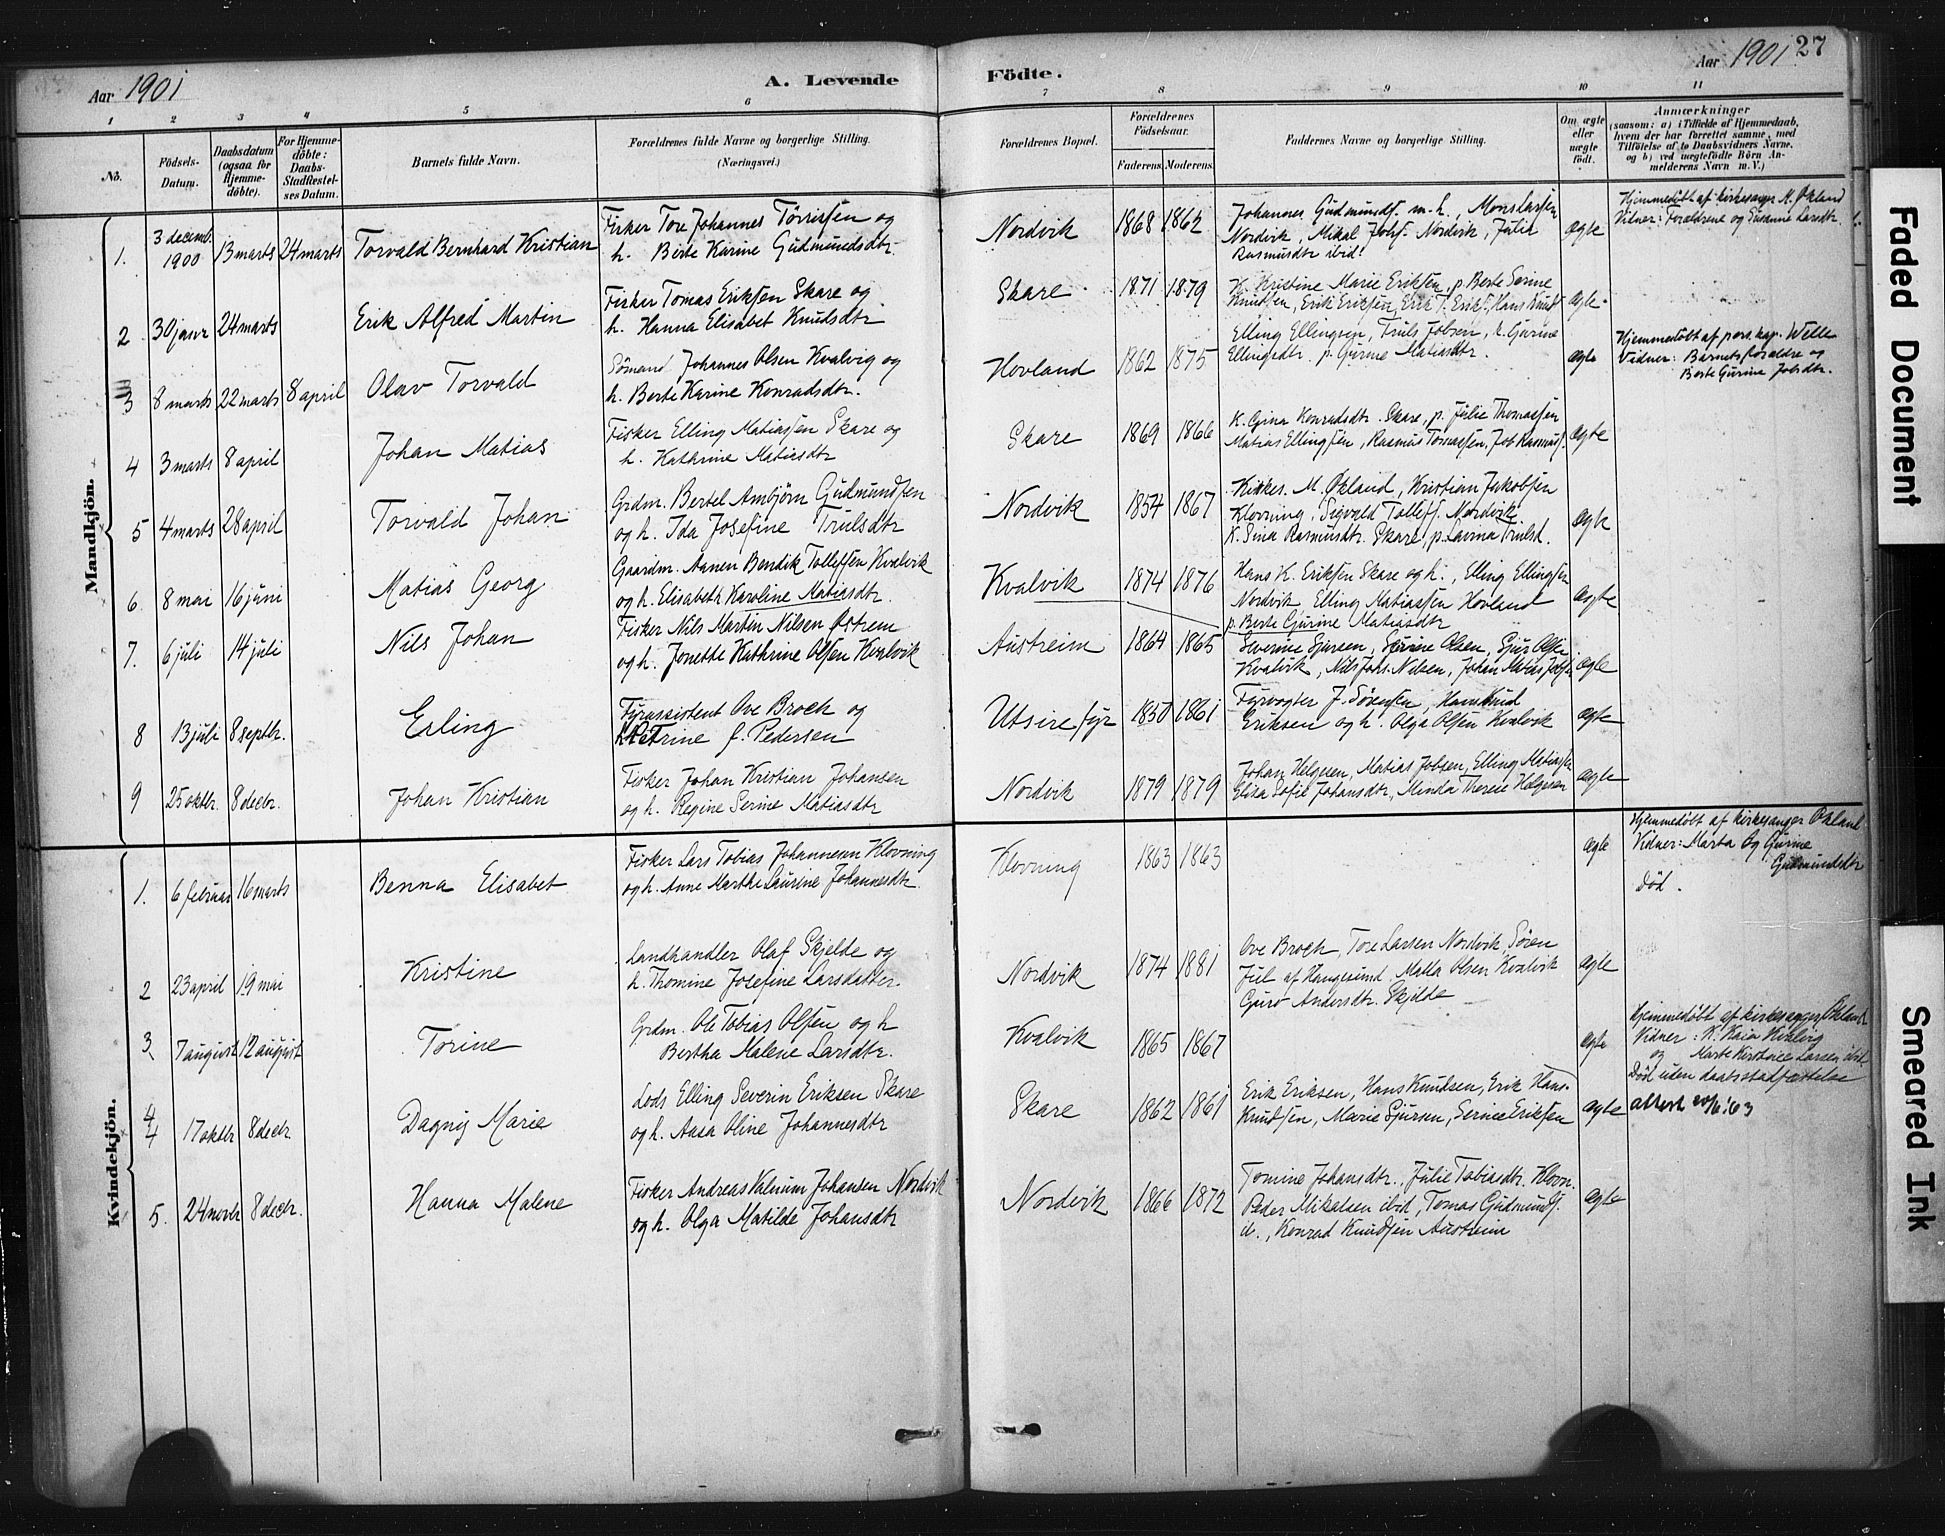 Aar 1901
A. Levende Födte.
Aar 1901 27
1 2 3 4 5 6 7 8 9 10 11
No.
Födsels-Datum.
Daabsdatum (ogsaa for Hjemmedöbte).
For Hjemmedöbte: Daabs-Stadfæstelses Datum.
Barnets fulde Navn.
Forældrenes fulde Navne og borgerlige Stilling. (Næringsvei.)
Forældrenes Bopæl.
Forældrenes Födselsaar.
Faderens. Moderens.
Faddernes Navne og borgerlige Stilling.
Om ægte eller uægte födt.
Anmærkninger
(saasom: a) i Tilfælde af Hjemmedaab, hvem der har forrettet samme, med Tilföielse af to Daabsvidners Navne. og b) ved uægtefödte Börn Anmelderens Navn m.V.)
Mandkjön.
1. 3 decemb. 1900 13 marts 24 marts Torvald Bernhard Kristian
Fisker Tore Johannes Törrissen og
h. Berte Karine Gudmundsdtr.
Nordvik 1868 1862
Johannes Gudmunds. m. h., Mons Larssen
Nordvik, Mikal Johs. Nordvik, Julie
Rasmusdtr ibid.
ægte
Hjemmedöbt af kirkesanger M. Økland
Vidner: Forældrene og Susanne Larsdtr.
2 30 janr 24 marts Erik Alfred Martin
Fisker Tomas Eriksen Skare og
h. Hanna Elisabet Knudsdtr
Skare 1871 1879
K. Kristine Marie Eriksen, p. Berte Serine
Knudsen, Erik Eriksen, Erik T. Eriks., Hans Knuds
ægte
3 8 marts 22 marts 8 april Olav Torvald
Sömand Johannes Olsen Kvalvig og
h. Berte Karine Konradsdtr.
Hovland 1862 1875
Elling Ellingsen, Truls Jobsen, k. Gurine
Ellingsdtr. p. Gurine Matiasdtr.
ægte
Hjemmedöbt af pers. kap. Welle
Vidner: Barnets forældre og
Berte Gurine Jobsdtr.
4 3 marts 8 april Johan Matias
Fisker Elling Matiassen Skare og
h. Kathrine Matiasdtr
Skare 1869 1866
K. Gina Konradsdtr. Skare, p. Julie Thomassen
Matias Ellingsen, Rasmus Tomassen, Job Rasmuss.
ægte
5 4 marts 28 april Torvald Johan
Grdm. Bertel Ambjörn Gudmundsen
og h. Ida Josefine Trulsdtr
Nordvik 1854 1867
Kirkes. M. Økland, Kristian Jakobsen
Klovning, Sigvald Tollefs. Nordvik.
K. Sina Rasmusdtr. Skare, p. Lavina Trulsd.
ægte
6. 8 mai 16 juni Matias Georg
Gaardm. Aanen Bendik Tollefsen Kvalvik
og h. Elisabeth Karoline Matiasdtr.
Kvalvik 1874 1876
Hans K. Eriksen Skare og h., Elling Ellingsen
Nordvik, Elling Matiassen Hovland
p. Berte Gurine Matiasdtr
ægte
7. 6 juli 14 juli Nils Johan
Fisker Nils Martin Nilsen Østrem
og h. Jonette Kathrine Olsen Kvalvik
Austreim 1864 1865
Severine Sjursen, Olsen, Sjur Olsen
Kvalvik, Nils Johs. Nilsen, Johan Matias
ægte
8 13 juli 8 septbr. Erling
Fyrassistent Ove Broch og
Petrine f. Pedersen
Utsire fyr 1850 1861
Fyrvogter J. Sörensen, Hans Knud
Eriksen og h. Olga Olsen Kvalvik
ægte
9 25 oktbr. 8 decbr. Johan Kristian
Fisker Johan Kristian Johansen
og h. Regine Serine Matiasdtr
Nordvik 1879 1879
Johan Helgesen, Matias Jobsen, Elling Matias
Elisa Sofie Johansdtr., Minda Therese Helgesen
ægte
Kvindekjön.
1. 6 februar 16 marts Benna Elisabet
Fisker Lars Tobias Johannesen Klovning
og h. Anne Marthe Laurine Johannesdtr.
Klovning 1863 1863
ægte
Hjemmedöbt af kirkesanger Økland.
Vidner: Marta Og Gurine
Gudmundsdtr
Död.
2 23 april 19 mai Kristine
Landhandler Olaf Skjelde og
h. Thomine Josefine Larsdatter.
Nordvik 1874 1881
Ove Broch, Tore Larsen Nordvik, Sören
Juel af Haugesund, Malla Olsen Kvalvik
Guro Andersdtr. Skjelde
ægte
3. 7 august 12 august Torine
Grdm. Ole Tobias Olsen og h
Bertha Malene Larsdtr.
Kvalvik 1865 1867
ægte
Hjemmedöbt af kirkesanger Økland
Vidner: K. Kaia Kvalvig
og Marte Kirstine Larsen ibid
Död uden daabsstadfæstelse
4 4 17 oktbr 8 decbr. Dagny Marie
Lods Elling Severin Eriksen Skare
og h. Aasa Oline Johannesdtr
Skare 1862 1861
Erik Eriksen, Hans Knudsen, Erik Hans.
Knudsen, Marie Sjursen, Serine Eriksen
ægte
attest 20/6.63
5. 24 novbr 8 decbr. Hanna Malene
Fisker Andreas Valnum Johansen Nordvik
og h. Olga Matilde Johansdtr
Nordvik 1866 1872
Tomine Johansdtr., Julie Tobiasdtr. Klovn.
Peder Mikalsen ibid, Tomas Gudmunds.
ib., Konrad Knudsen Austreim
ægte
Faded Document
Smeared Ink